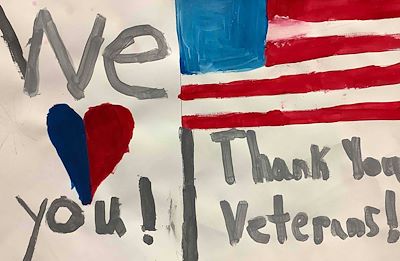 We
you!
Thank You
Veterans!